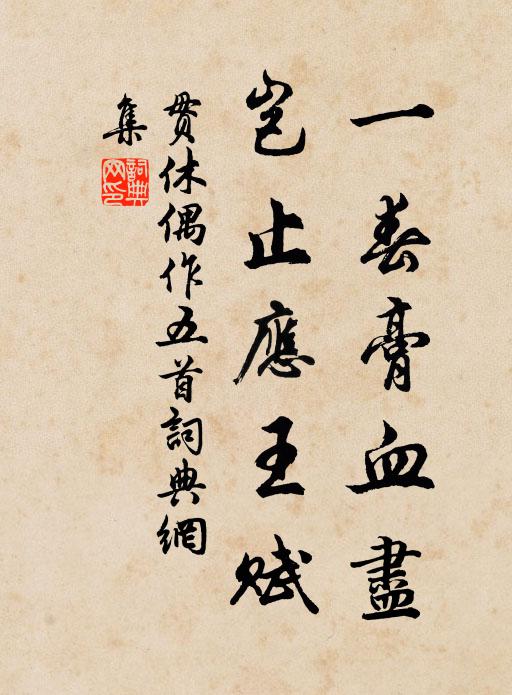 一春膏血盡
豈止應王賦
貫休偶作五首詞典網
集
詞典網印